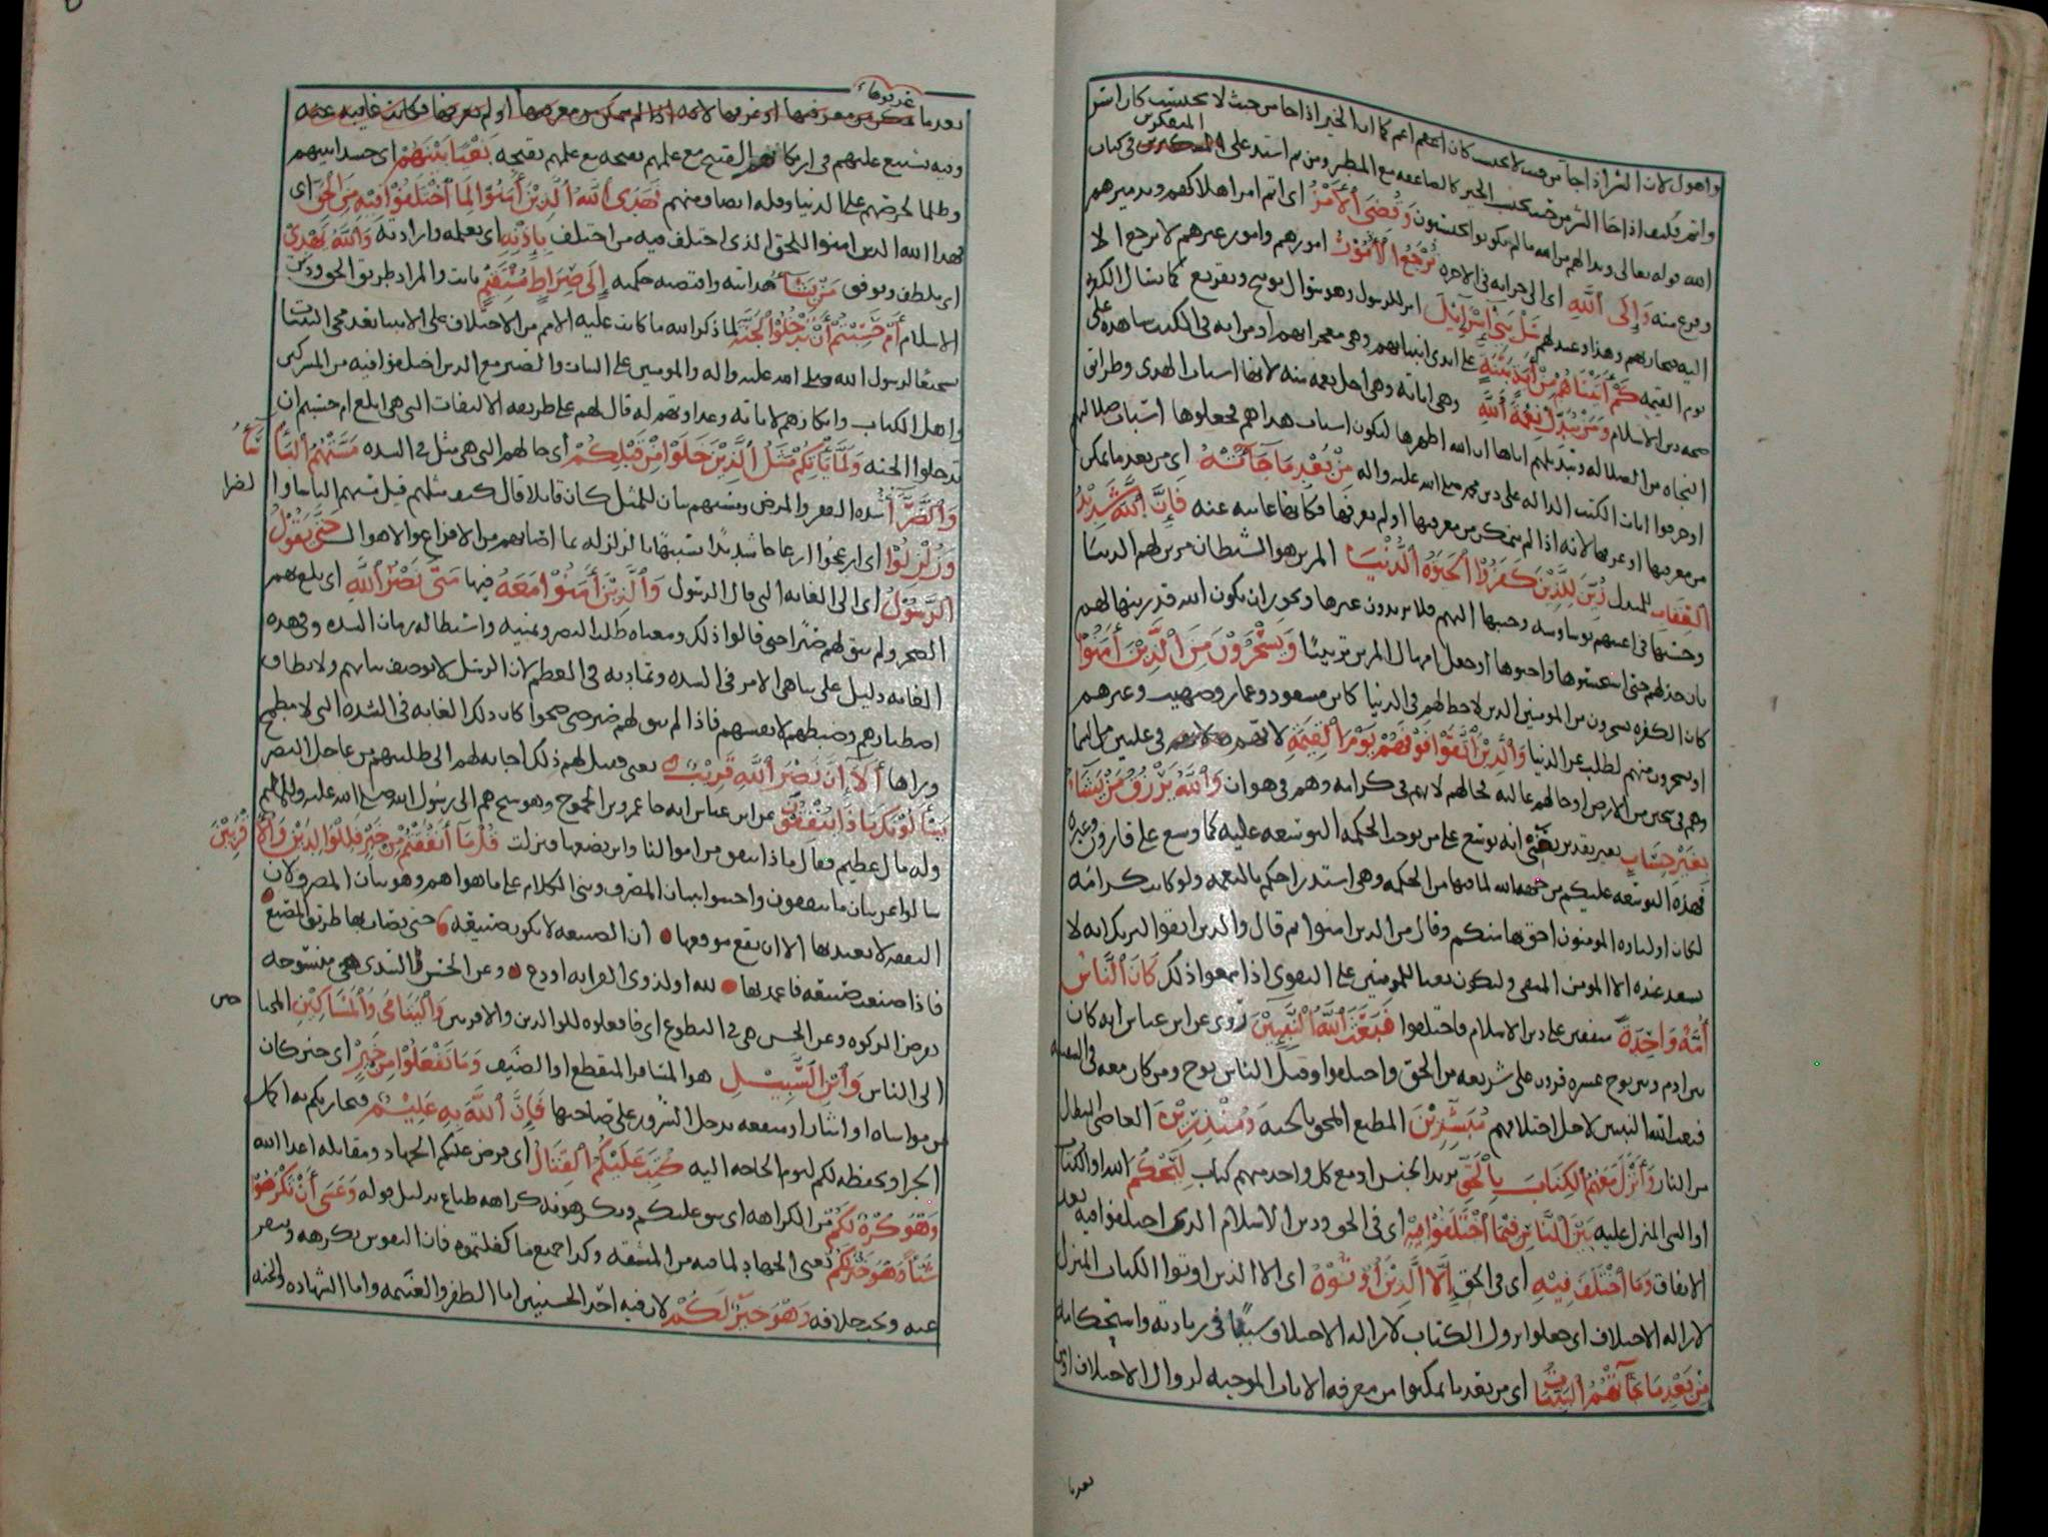 واهول لان الشر اذا جا من حيث لا يحتسب كان اغم كما ان الخير اذا جا من حيث لا يحتسب كان اسر
المتفكرين
واتم فكيف اذا جا الشر من حيث يحتسب الخير كالصاعقه مع المطر ومن ثم اشتد على المتفكرين في كتاب
الله قوله تعالى وبدا لهم من الله ما لم يكونوا يحتسبون وَقُضِيَ ٱلْأَمْرُ اي اتم امر اهلاكهم وتدميرهم
وفرغ منه وَإِلَى ٱللَّهِ اي الى جزايه في الاخره تُرْجَعُ ٱلْأُمُوْرُ امورهم وامور غيرهم لا ترجع الا
اليه فيجازيهم وهذا وعيد لهم سَلْ بَنِيْ إِسْرَآئِيْلَ امر للرسول وهو سؤال توبيخ وتقريع كما يسال الكفره
يوم القيمه كَمْ آتَيْنَاهُمْ مِّنْ آيَةٍ بَيِّنَةٍ على ايدي انبيائهم وهي معجزاتهم او من ايه في الكتب شاهده على
صحه دين الاسلام وَمَنْ يُبَدِّلْ نِعْمَةَ ٱللَّهِ وهي اياته وهي اجل نعمه منه لانها اسباب الهدى وطرائق
النجاه من الضلاله وتبديلهم اياها ان الله اظهرها لتكون اسباب هداهم فجعلوها اسباب ضلالهم
او حرفوا ايات الكتب الداله على دين محمد صلى الله عليه واله مِنْ بَعْدِ مَا جَآءَتْهُ اي من بعد ما تمكن
من معرفتها او عرفها لانه اذا لم يتمكن من معرفتها او لم يعرفها فكانها غايبه عنه فَإِنَّ ٱللَّهَ شَدِيْدُ
ٱلْعِقَابِ للمبدل زُيِّنَ لِلَّذِيْنَ كَفَرُوْا ٱلْحَيَوٰةُ ٱلدُّنْيَا المزين هو الشيطان زين لهم الدنيا
وحسنها في اعينهم بوساوسه وحببها اليهم فلا يريدون غيرها ويجوز ان يكون الله قد زينها لهم
بان خذلهم حتى استحسنوها واحبوها او جعل امهال المزين تزيينًا وَيَسْخَرُوْنَ مِنَ ٱلَّذِيْنَ آمَنُوْا
كان الكفره يسخرون من المومنين الذين لا حظ لهم في الدنيا كابن مسعود وعمار وصهيب وغيرهم
او يسخرون منهم لطلب غير الدنيا وَٱلَّذِيْنَ ٱتَّقَوْا فَوْقَهُمْ يَوْمَ ٱلْقِيٰمَةِ لانهم في عليين من السما
وهم في سجين من الارض او حالهم عاليه لحالهم لانهم في كرامه وهم في هوان وَٱللَّهُ يَرْزُقُ مَنْ يَشَآءُ
بِغَيْرِ حِسَابٍ بغير تقدير يعني انه يوسع على من توجب الحكمه التوسعه عليه كما وسع على قارون وغيره
فهذه التوسعه عليكم من جهه الله لما فيها من الحكمه وهي استدراجكم بالنعمه ولو كانت كرامه
لكان اولياوه المومنون احق بها منكم وقال من الذين امنوا ثم قال والذين اتقوا ليريك انه لا
يسعد عنده الا المومن المتقي وليكون بعثا للمومنين على التقوى اذا سمعوا ذلك كَانَ ٱلنَّاسُ
أُمَّةً وَاحِدَةً متفقين على دين الاسلام فاختلفوا فَبَعَثَ ٱللَّهُ ٱلنَّبِيِّيْنَ روي عن ابن عباس انه كان
بين ادم وبين نوح عشره قرون على شريعه من الحق واختلفوا وقيل الناس نوح ومن كان معه في السفينه
فبعث الله النبيين لاجل اختلافهم مُبَشِّرِيْنَ المطيع المحق بالجنه وَمُنْذِرِيْنَ العاصي المبطل
من النار وَأَنْزَلَ مَعَهُمُ ٱلْكِتَابَ بِٱلْحَقِّ يريد الجنس او مع كل واحد منهم كتاب لِيَحْكُمَ الله او الكتاب
او النبي المنزل عليه بَيْنَ ٱلنَّاسِ فِيْمَا ٱخْتَلَفُوْا فِيْهِ اي في الحق ودين الاسلام الذي اختلفوا فيه بعد
الاتفاق وَمَا ٱخْتَلَفَ فِيْهِ اي في الحق إِلَّا ٱلَّذِيْنَ أُوْتُوْهُ اي الا الذين اوتوا الكتاب المنزل
لازاله الاختلاف اي جعلوا نزول الكتاب لازاله الاختلاف سببًا في زيادته واستحكامه
مِنْ بَعْدِ مَا جَآءَتْهُمُ ٱلْبَيِّنَاتُ اي من بعد ما تمكنوا من معرفه الايات الموجبه لزوال الاختلاف او من
بعد ما
عرفوها
بعد ما تمكن من معرفتها او عرفها لانه اذا لم يتمكن من معرفتها او لم يعرفها فكانت غايبه عنه
وفيه تشنيع عليهم في ارتكابهم القبيح مع علمهم بقبحه بَغْيًا بَيْنَهُمْ اي حسدا بينهم
وظلما لحرصهم على الدنيا وقله انصاف منهم فَهَدَى ٱللَّهُ ٱلَّذِيْنَ آمَنُوْا لِمَا ٱخْتَلَفُوْا فِيْهِ مِنَ ٱلْحَقِّ اي
فهدا الله الذين امنوا للحق الذي اختلف فيه من اختلف بِإِذْنِهِ اي بعلمه وارادته وَٱللَّهُ يَهْدِيْ
اي يلطف ويوفق مَنْ يَشَآءُ هدايته واقتضته حكمته إِلَى صِرَاطٍ مُّسْتَقِيْمٍ ثابت والمراد طريق الحق ودين
الاسلام أَمْ حَسِبْتُمْ أَنْ تَدْخُلُوْا ٱلْجَنَّةَ لما ذكر الله ما كانت عليه الامم من الاختلاف على الانبيا بعد مجي البينات
تشجيعًا لرسول الله صلى الله عليه واله والمومنين على الثبات والصبر مع الذين اختلفوا فيه من المشركين
واهل الكتاب وانكارهم لاياته وعداوتهم له قال لهم على طريقه الالتفات التي هي ابلغ ام حسبتم ان
تدخلوا الجنه وَلَمَّا يَأْتِكُمْ مَّثَلُ ٱلَّذِيْنَ خَلَوْا مِنْ قَبْلِكُمْ اي حالهم التي هي مثل في الشده مَسَّتْهُمُ ٱلْبَأْسَآءُ
وَٱلضَّرَّآءُ شده الفقر والمرض ومستهم بيان للمثل كان قايلا قال كيف مثلهم فقيل مستهم الباسا وا لضرا
وَزُلْزِلُوْا اي ازعجوا ازعاجا شديدًا شبيهًا بالزلزله بما اصابهم من الافزاع والاهوال حَتَّى يَقُوْلَ
ٱلرَّسُوْلُ اي الى الغايه التي قال الرسول وَٱلَّذِيْنَ آمَنُوْا مَعَهُ فيها مَتَى نَصْرُ ٱللَّهِ اي بلغ بهم
الضجر ولم يبق لهم صبرًا حتى قالوا ذلك ومعناه طلب النصر وتمنيه واستطاله زمان الشده وفي هذه
الغايه دليل على تناهي الامر في الشده وتماديه في العظم لان الرسل لا يوصف ثباتهم ولا يطاق
اصطبارهم وضبطهم لانفسهم فاذا لم يبق لهم صبر حتى ضجوا كان ذلك الغايه في الشده التي لا مطمح
وراها أَلَآ إِنَّ نَصْرَ ٱللَّهِ قَرِيْبٌ يعني فقيل لهم ذلك اجابه لهم الى طلبتهم من عاجل النصر
يَسْأَلُوْنَكَ مَاذَا يُنْفِقُوْنَ عن ابن عباس انه جا عمرو بن الجموح وهو شيخ هم الى رسول الله صلى الله عليه واله وسلم
وله مال عظيم فقال ماذا ننفق من اموالنا واين نضعها فنزلت قُلْ مَآ أَنْفَقْتُمْ مِّنْ خَيْرٍ فَلِلْوَالِدَيْنِ وَٱلْأَقْرَبِيْنَ
سالوا عن بيان ما ينفقون واجيبوا ببيان المصرف وبني الكلام على ما هو اهم وهو بيان المصرف لان
النفقه لا يعتد بها الا ان تقع موقعها • ان الصنيعه لا تكون صنيعه • حتى يصاب بها طريق المصنع
فاذا صنعت صنيعه فاعمد بها • لله او لذوي القرابه او دع • وعن الحسن والسدي هي منسوخه
بفرض الزكوه وعن الحسن هي في التطوع اي فافعلوه للوالدين والاقربين وَٱلْيَتَامَى وَٱلْمَسَاكِيْنِ المحتا جين
الى الناس وَٱبْنِ ٱلسَّبِيْلِ هو المسافر المنقطع او الضيف وَمَا تَفْعَلُوْا مِنْ خَيْرٍ اي خير كان
من مواساه او ايثار او منفعه تدخل السرور على صاحبها فَإِنَّ ٱللَّهَ بِهِ عَلِيْمٌ فيجازيكم به اكمل
الجزا ويحفظه لكم ليوم الحاجه اليه كُتِبَ عَلَيْكُمُ ٱلْقِتَالُ اي فرض عليكم الجهاد ومقاتله اعدا الله
وَهُوَ كُرْهٌ لَّكُمْ من الكراهه اي شق عليكم وتكرهونه كراهه طباع بدليل قوله وَعَسَى أَنْ تَكْرَهُوْا
شَيْئًا وَّهُوَ خَيْرٌ لَّكُمْ يعني الجهاد لما فيه من المشقه وكذا جميع ما كلفتموه فان النفوس تكرهه وتنفر
عنه وتحب خلافه وَهُوَ خَيْرٌ لَّكُمْ لان فيه احد الحسنيين اما الظفر والغنيمه واما الشهاده والجنه